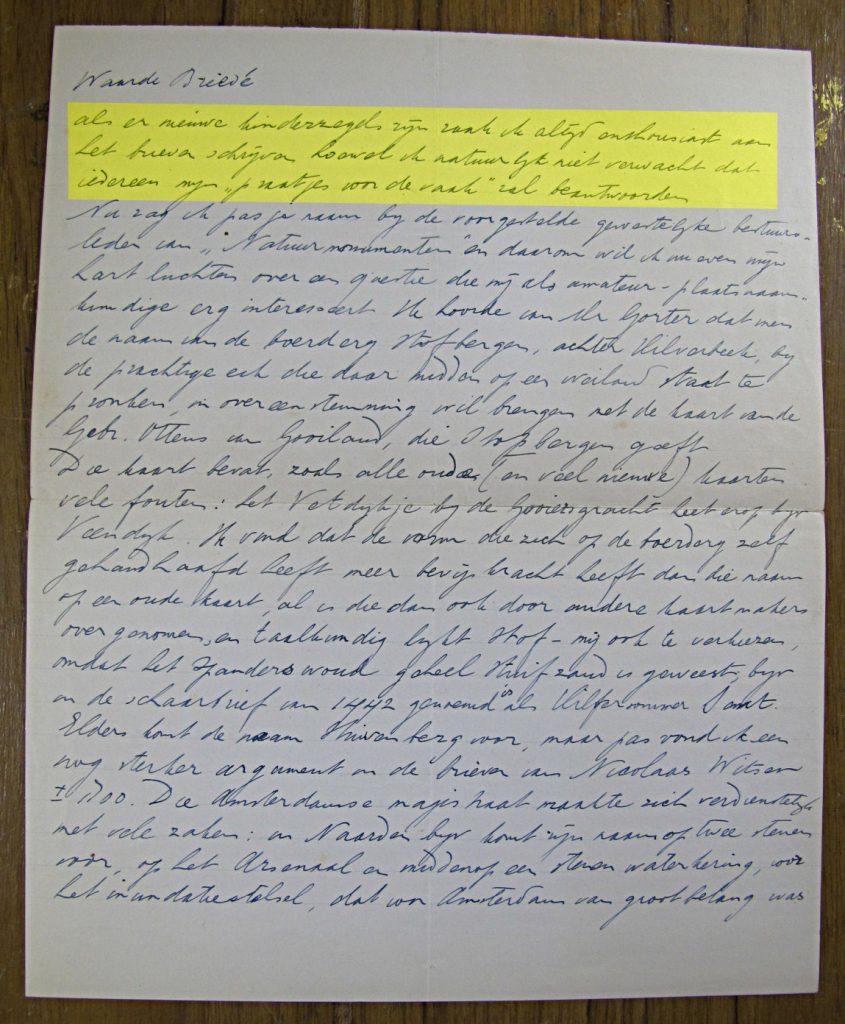 Waarde Briedé
als er nieuwe kinderzegels zijn raak ik altijd enthousiast aan
het brieven schrijven hoewel ik natuurlijk niet verwacht dat
iedereen mijn „praatjes voor de vaak" zal beantwoorden
Nu zag ik pas je naam bij de voorgestelde gewestelijke bestuurs-
leden van „Natuurmonumenten" en daarom wil ik nu even mijn
hart luchten over een questie die mij als amateur-plaatsnaam-
kundige erg interesseert. Ik hoorde van Mr Gorter dat men
de naam van de boerderij Stofbergen, achter Hilverbeek, bij
de prachtige eik die daar midden op een weiland staat te
pronken, in overeenstemming wil brengen met de kaart van de
Gebr. Ottens van Gooiland, die Stopbergen geeft
Die kaart bevat, zoals alle oude (en veel nieuwe) kaarten
vele fouten: het Vetdijkje bij de Gooiersgracht heet erop bijv
Veendijk. Ik vond dat de vorm die zich op de boerderij zelf
gehandhaafd heeft meer bewijskracht heeft dan die naam
op een oude kaart, al is die dan ook door andere kaartmakers
overgenomen, en taalkundig lijkt Stof- mij ook te verkiezen,
omdat het Spanderswoud geheel stuifzand is geweest, bijv
in de schaarbrief van 1442 genoemd is als Hilfersummer Sant.
Elders komt de naam Stuivenberg voor, maar pas vond ik een
nog sterker argument in de brieven van Nicolaas Witsen
± 1700. Die Amsterdamse magistraat maakte zich verdienstelijk
met vele zaken: in Naarden bijv komt zijn naam op twee stenen
voor, op het Arsenaal en middenop een stenen waterkering, voor
het inundatiestelsel, dat voor Amsterdam van groot belang was